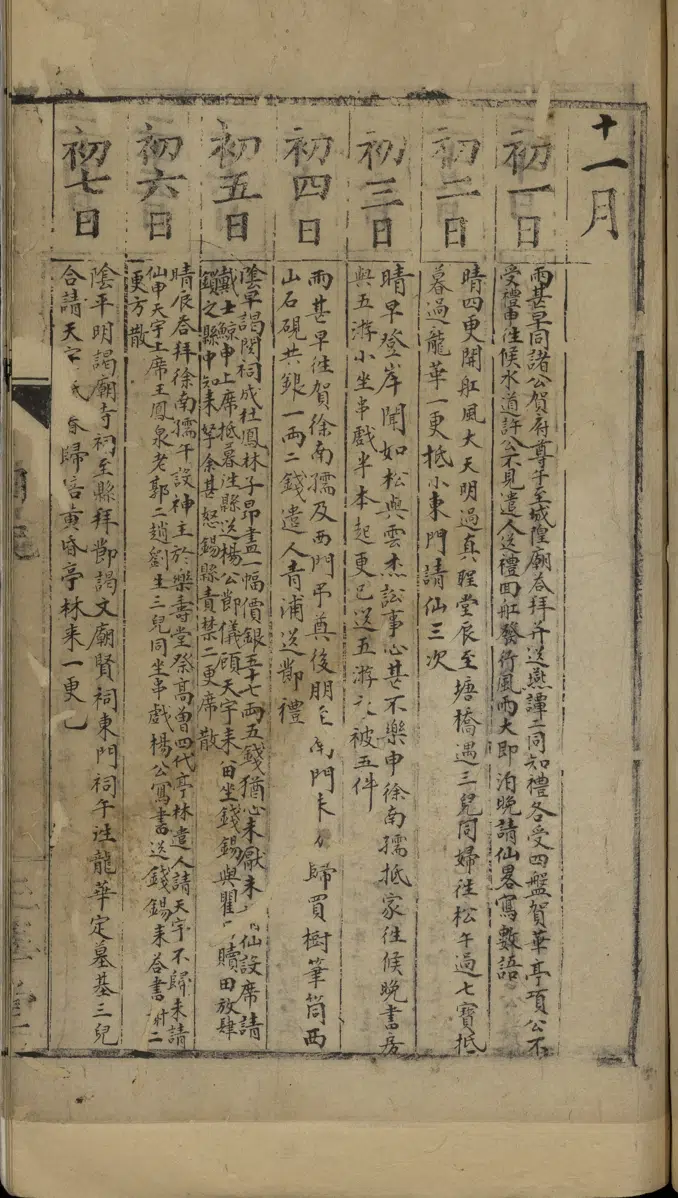 十一月
初一日
雨甚早同諸公賀府尊午至城隍廟答拜并送燕譚二同知禮各受四盤賀華亭項公不
受禮申往候水道許公不見遣人送禮回舡發行風雨大即泊晚請仙畧寫數語
初二日
晴四更開舡風大天明過真聖堂辰至塘橋遇三兒同婦往松午過七寶抵
暮過龍華一更抵小東門請仙三次
初三日
晴早登岸聞如松與雲杰訟事心甚不樂申徐南孺抵家往候晚書房
與五游小坐串戲半本起更已送五游 被五件
初四日
雨甚早往賀徐南孺及西門弔尊後朋 南門 歸買樹筆筒西
山石硯共銀一兩二錢遣人青浦送節禮
初五日
陰早謁関祠成杜鳳林子昂畫一幅價銀五十七兩五錢猶心未厭未 仙設席請
戴士鯨申上席抵暮往縣送楊公節儀頋天宇来畄坐錢錫與瞿 贖田放肆
鎖之縣中知来拏余甚怒錫縣責禁二更席散
初六日
晴辰答拜徐南孺午設神主於樂壽堂祭高曾四代亭林遣人請天宇不歸未請
仙申天宇上席王鳳泉老郭二趙劉生三兒同坐串戲楊公寫書送錢錫来答書 二
更方散
初七日
陰平明謁廟寺祠至縣拜節謁文廟賢祠東門祠午往龍華定墓基三兒
合請天宇 歸 黄昏亭林来一更